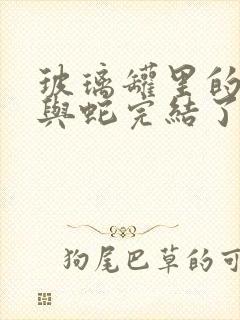 玻璃罐里的
與蛇完結了
狗尾巴草的可